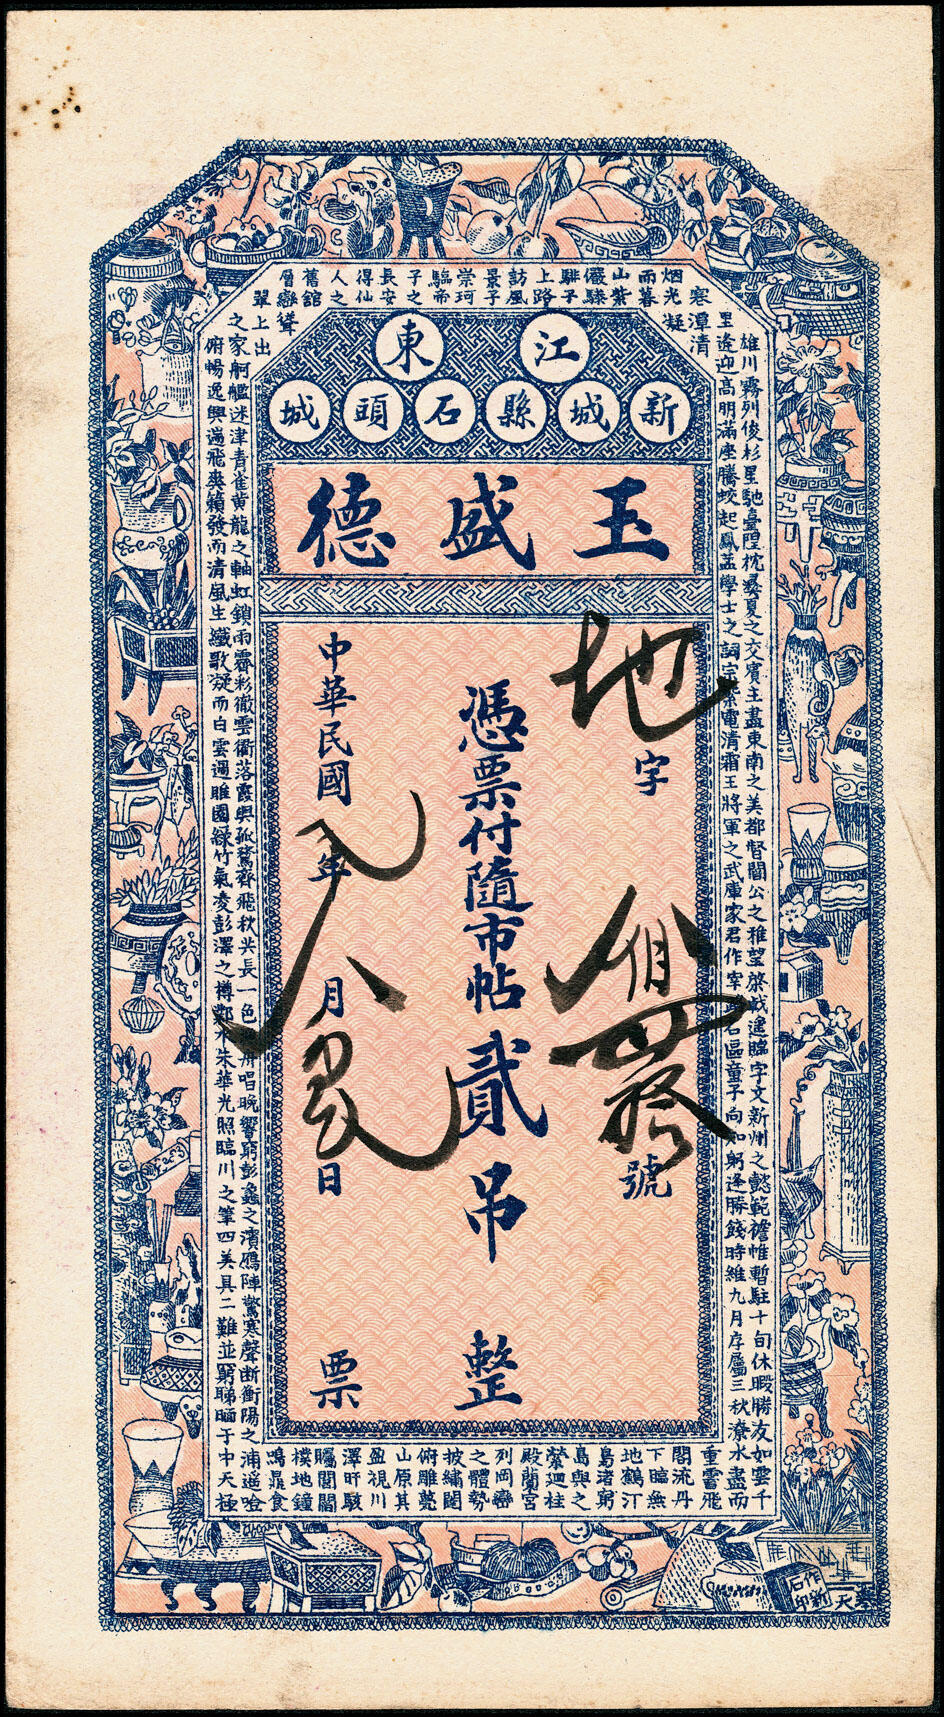 江東
新城縣石頭城
玉盛德
地字 佰 號
憑票付隨市帖貳吊整
中華民國 年八月 日票
雄川霧列俊杉星馳臺隍枕夷夏之交賓主盡東南之美都督閻公之雅望棨戟遙臨宇文新州之懿範襜帷暫駐十旬休暇勝友如雲千
里逢迎高明滿座騰蛟起鳳孟學士之詞宗紫電清霜王將軍之武庫家君作宰石區童子向知躬逢勝餞時維九月序屬三秋潦水盡而
寒潭清
烟光凝
而暮
山紫
儼驂
騑子
上路
訪風
景子
崇珂
臨帝
子之
長安
得仙
人之
舊館
層巒聳
翠上出
重霄飛
閣流丹
下臨無
地鶴汀
鳧渚窮
島與之
縈迴桂
殿蘭宮
列岡巒
之體勢
披繡闥
俯雕甍
山原其
盈視川
澤旰駭
矚閭閻
樸地鐘
鳴鼎食
之家舸艦迷津青雀黄龍之軸虹銷雨霽彩徹雲衢落霞與孤鶩齊飛秋水長一色舟唱晚響窮彭蠡之濱鴈陣驚寒聲断衡陽之浦遥唫
俯暢逸興遄飛爽籟發而清風生纖歌凝而白雲遏睢園綠竹氣凌彭澤之樽鄴水朱華光照臨川之筆四美具二難並窮睇眄于中天極
奉天
作新
石印